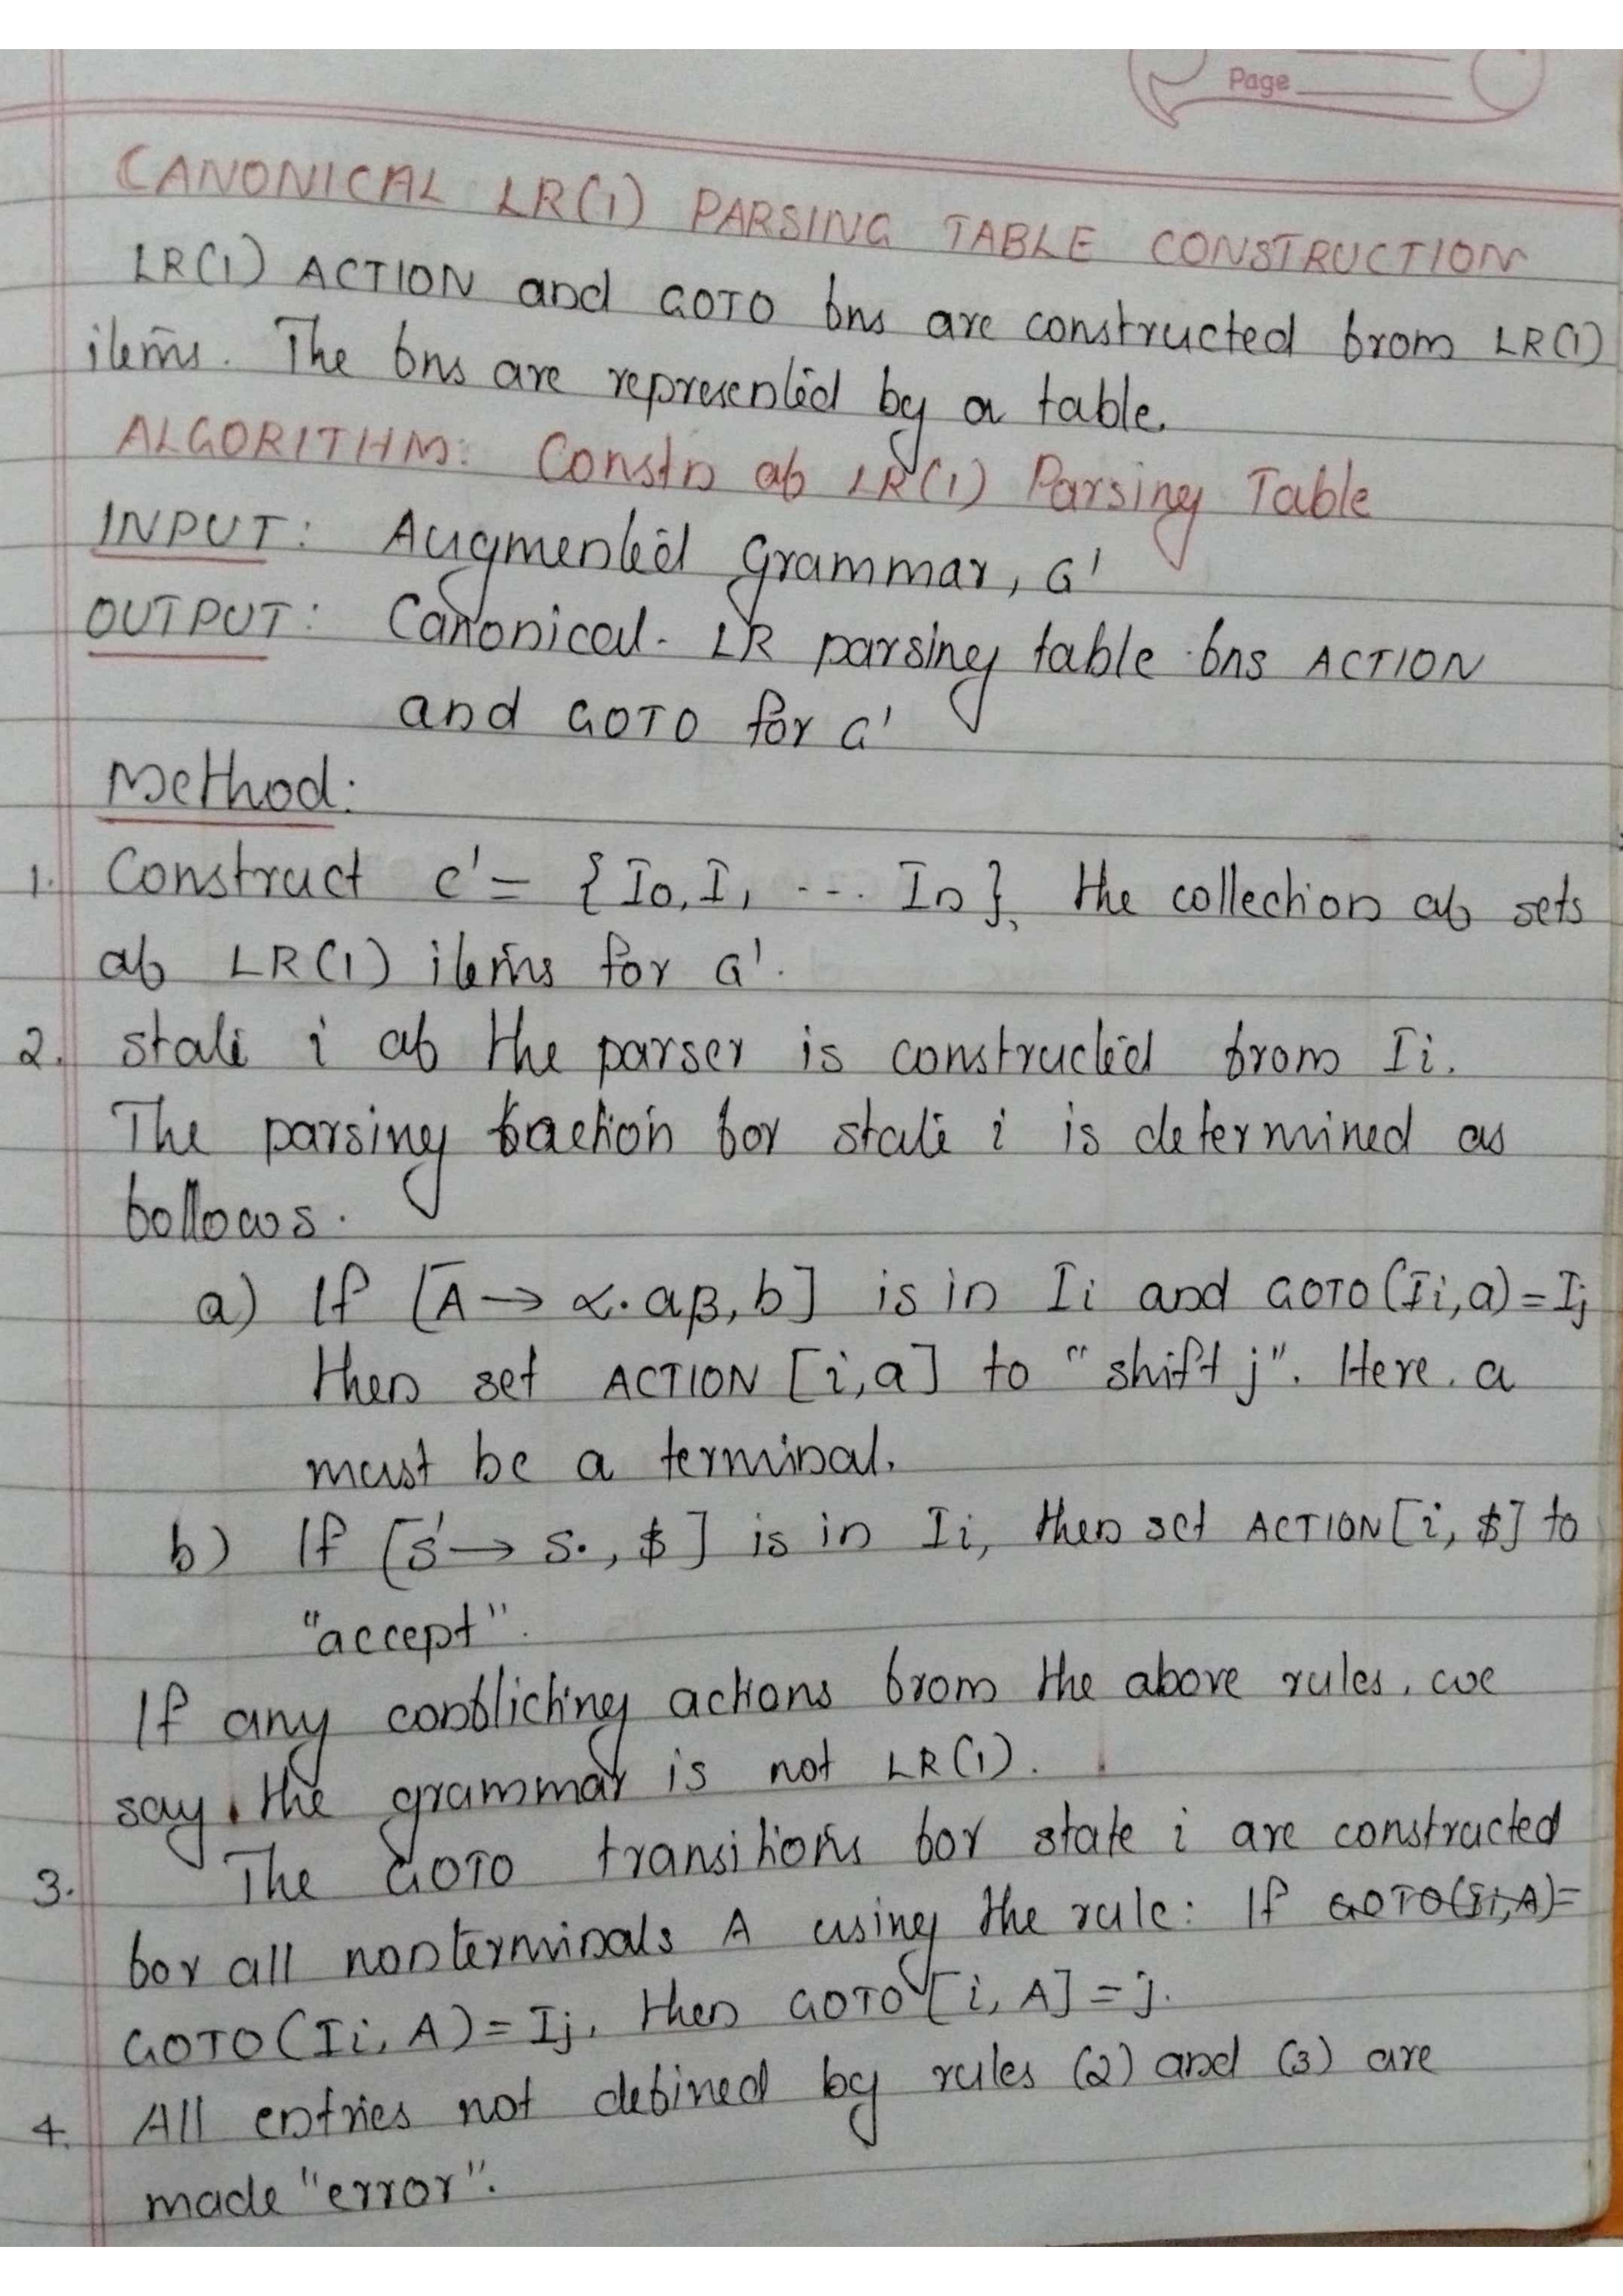 Page
CANONICAL LR(1) PARSING TABLE CONSTRUCTION
LR(1) ACTION and GOTO fns are constructed from LR(1)
items. The fns are represented by a table.
ALGORITHM: Constn of LR(1) Parsing Table
INPUT: Augmented Grammar, G'
OUTPUT: Canonical-LR parsing table fns ACTION
and GOTO for G'
Method:
1. Construct C' = {I0, I1 ... In}, the collection of sets
of LR(1) items for G'.
2. State i of the parser is constructed from Ii.
The parsing action for state i is determined as
follows.
a) If [A → α.aβ, b] is in Ii and GOTO(Ii,a)=Ij
then set ACTION [i,a] to "shift j". Here, a
must be a terminal.
b) If [S' → S., $] is in Ii, then set ACTION[i, $] to
"accept".
If any conflicting actions from the above rules, we
say, the grammar is not LR(1).
3. The GOTO transitions for state i are constructed
for all nonterminals A using the rule: If GOTO(Ii,A)=
GOTO(Ii, A) = Ij, then GOTO[i, A] = j.
4. All entries not defined by rules (2) and (3) are
made "error".